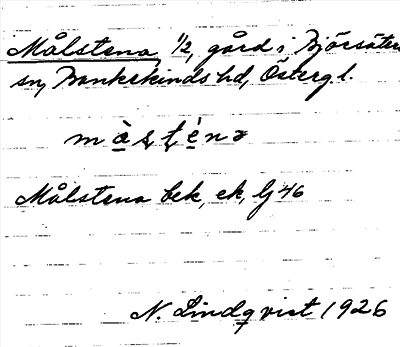 Målstena, 1/2, gård i Björsäter
sn, Bankekinds hd, Östergl.
Målstena bek, ek, lj 46
N. Lindqvist 1926